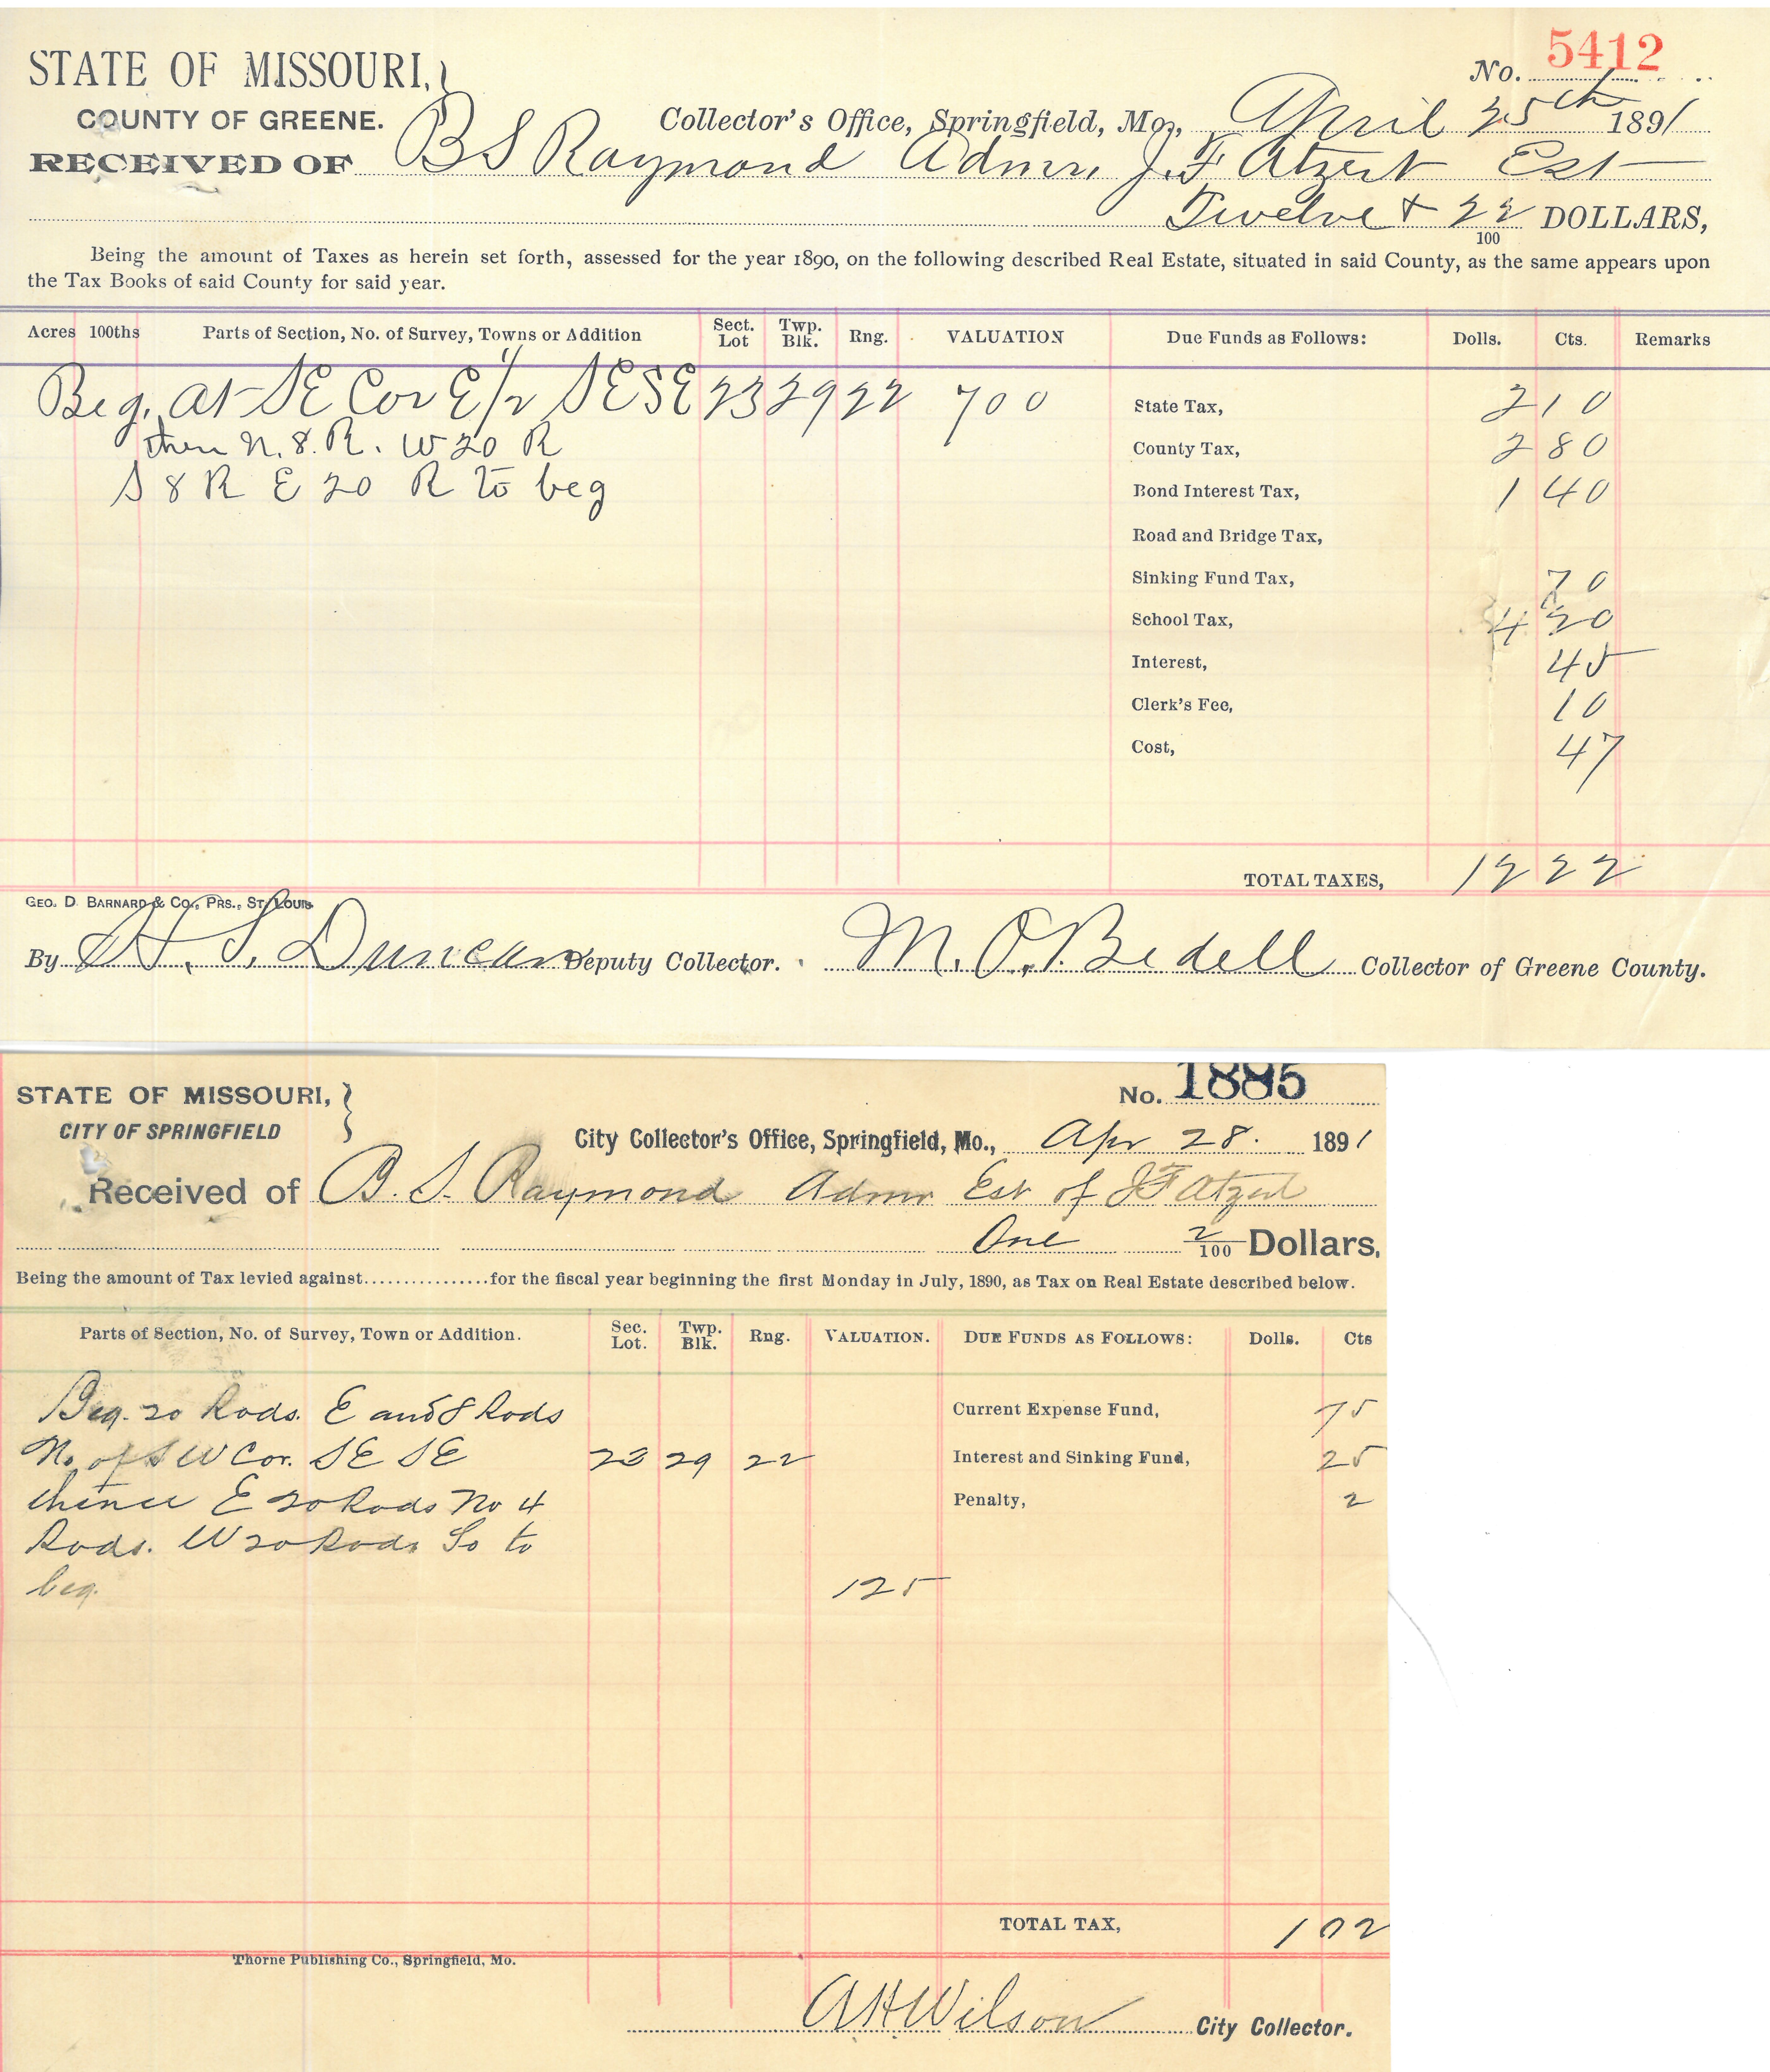 STATE OF MISSOURI,
COUNTY OF GREENE.
No. 5412
Collector's Office, Springfield, Mo., April 25th 1891
RECEIVED OF B S Raymond Admr, J. F Atzert Est
Twelve + 22/100 DOLLARS,
Being the amount of Taxes as herein set forth, assessed for the year 1890, on the following described Real Estate, situated in said County, as the same appears upon
the Tax Books of said County for said year.
Acres 100ths Parts of Section, No. of Survey, Towns or Addition Sect. Lot Twp. Blk. Rng. VALUATION Due Funds as Follows: Dolls. Cts. Remarks
Beg. at SE Cor E 1/2 SESE 23 29 22 700 State Tax, 2 10
then N. 8. R. W 20 R County Tax, 2 80
S 8 R E 20 R to beg Bond Interest Tax, 1 40
Road and Bridge Tax,
Sinking Fund Tax, 70
School Tax, 4 20
Interest, 45
Clerk's Fee, 10
Cost, 47
TOTAL TAXES, 12 22
GEO. D. BARNARD & CO., PRS., ST. LOUIS
By H. S. Duncan Deputy Collector. M. O. Bedell Collector of Greene County.
STATE OF MISSOURI,
CITY OF SPRINGFIELD
No. 1885
City Collector's Office, Springfield, Mo., Apr 28. 1891
Received of B. S. Raymond Admr Est of J F Atzert
One 2/100 Dollars,
Being the amount of Tax levied against................for the fiscal year beginning the first Monday in July, 1890, as Tax on Real Estate described below.
Parts of Section, No. of Survey, Town or Addition. Sec. Lot. Twp. Blk. Rng. VALUATION. DUE FUNDS AS FOLLOWS: Dolls. Cts
Beg. 20 Rods. E and 8 Rods Current Expense Fund, 75
No. of S W Cor. SE SE 23 29 22 Interest and Sinking Fund, 25
thence E 20 Rods No 4 Penalty, 2
Rods. W 20 Rods So to
beg. 125
TOTAL TAX, 1 02
Thorne Publishing Co., Springfield, Mo.
A H Wilson City Collector.